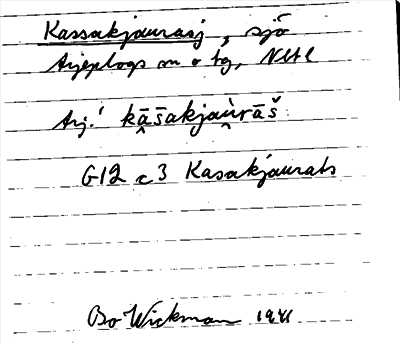 Kassakjaurasj, sjö
Arjeplogs sn o tg, Nbtl
Arj.: kāšakjaùrāš
G12 c 3 Kasakjaurats
Bo Wickman 1941